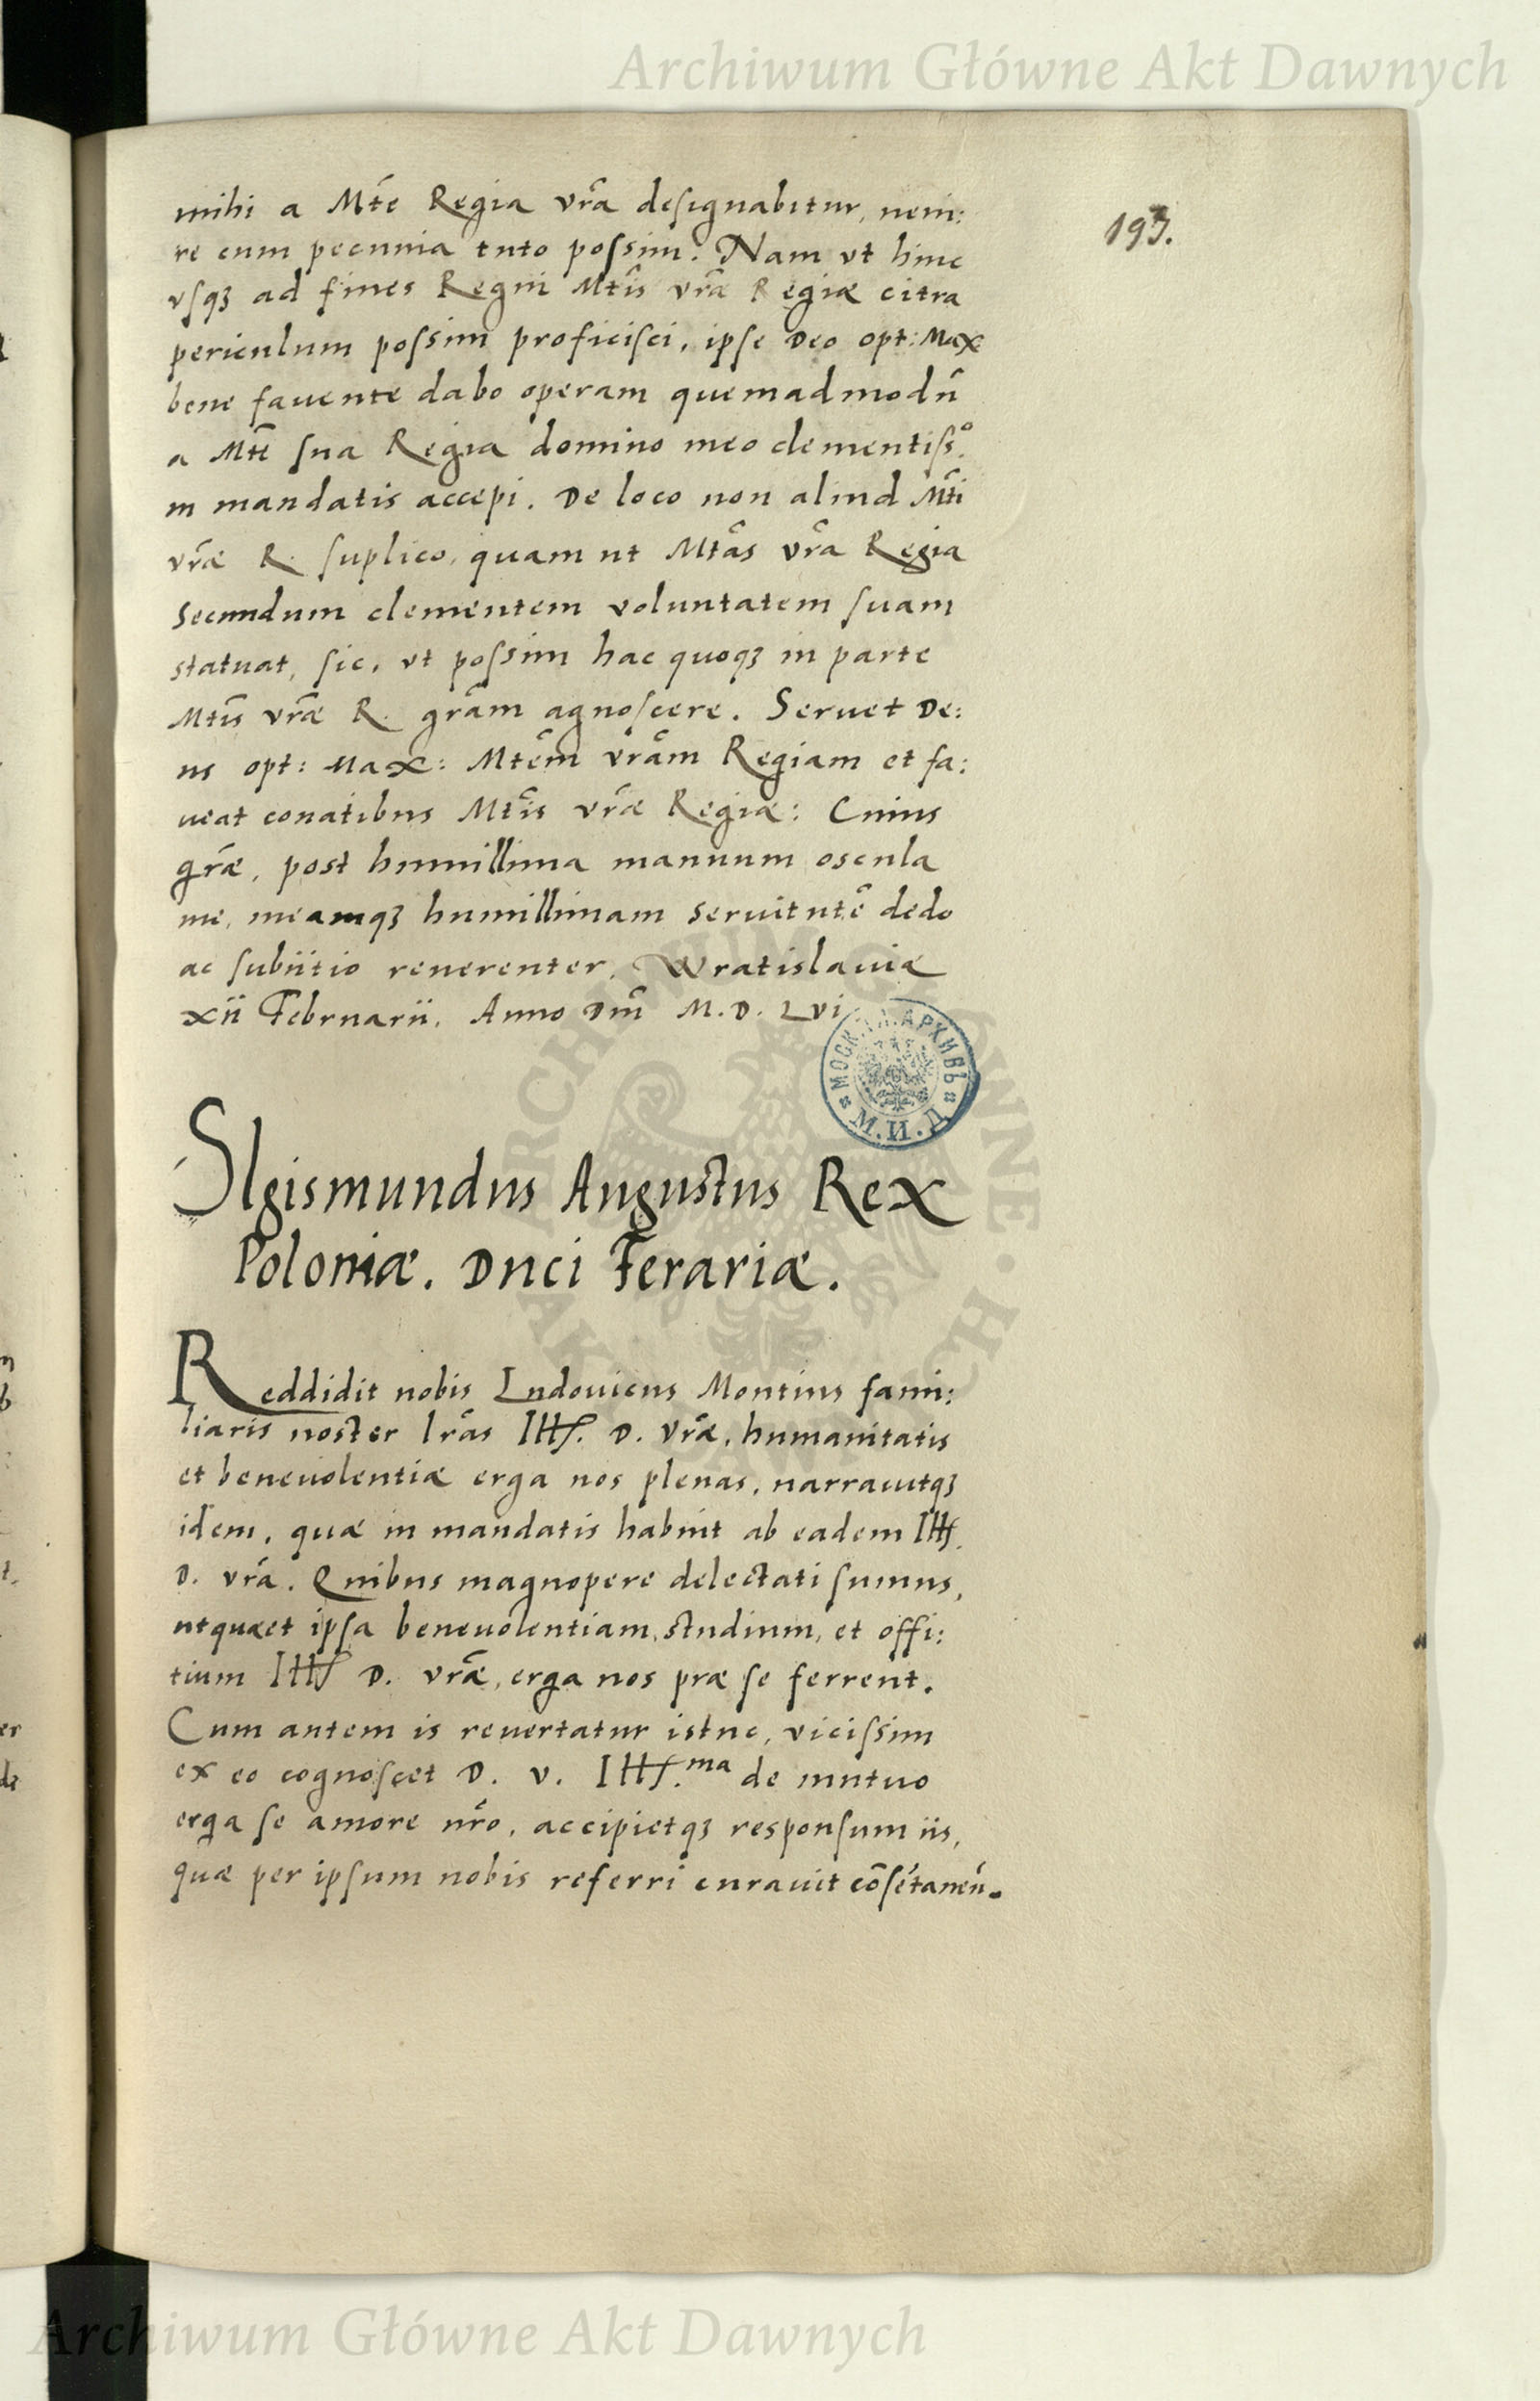 Archiwum Główne Akt Dawnych
193.
mihi a Mt̃e Regia vr̃a designabitur, veni:
re cum pecunia tuto possim. Nam vt hinc
vsq₃ ad fines Regni Mt̃is vr̃æ Regiæ citra
periculum possim proficisci, ipse Deo opt: Max
bene fauente dabo operam quemadmodũ
a Mt̃e sua Regia domino meo clementiss.º
in mandatis accepi. De loco non aliud Mt̃i
vr̃æ R. suplico, quam ut Mtãs vr̃a Regia
secundum clementem voluntatem suam
statuat, sic, vt possim hac quoq₃ in parte
Mt̃is vr̃æ R. gr̃am agnoscere. Seruet De:
us opt: Max: Mtẽm vr̃am Regiam et fa:
ueat conatibus Mt̃is vr̃æ Regiæ: Cuius
gr̃æ, post humillima manuum oscula
me, meamq₃ humillimam seruitutẽ dedo
ac subiitio reuerenter. Wratislauiæ
xii Februarii. Anno Dm̃ M.D. Lvi
МОСК. ГЛ. АРХИВЪ
М.И.Д
SIgismundus Augustus Rex
Poloniæ. Duci Ferariæ.
Reddidit nobis Ludouicus Montius fami:
liaris noster lr̃as Ills. D. vr̃æ, humanitatis
et beneuolentiæ erga nos plenas, narrauitq₃
idem, quæ in mandatis habuit ab eadem Ills.
D. vr̃a. Quibus magnopere delectati sumus,
utquæet ipsa beneuolentiam, studium, et offi:
tium Ills D. vr̃æ, erga nos præ se ferrent.
Cum autem is reuertatur istuc, vicissim
ex eo cognoscet D. v. Ills.ᵐᵃ de mutuo
erga se amore nr̃o, accipietq₃ responsum iis,
quæ per ipsum nobis referri curauit cõsẽtaneũ.
Archiwum Główne Akt Dawnych